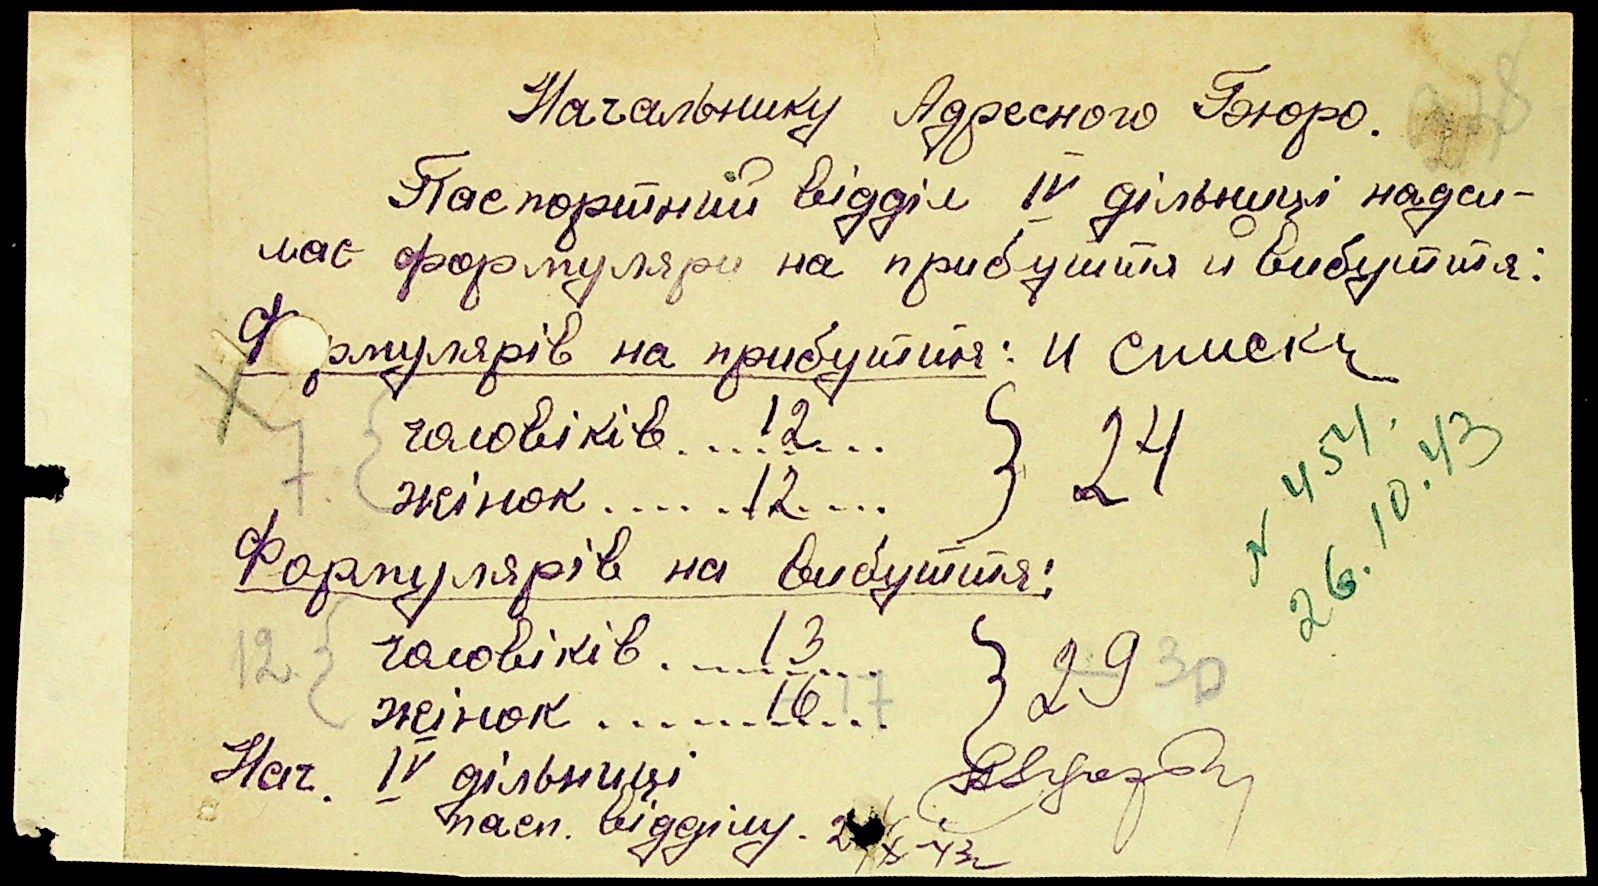 Начальнику Адресного Бюро.
Паспортний відділ IV дільниці надси-
лає формуляри на прибуття и вибуття:
Формулярів на прибуття: и списки
7. { чоловіків......12... } 24
жінок.........12...
N 454.
26.10.43
Формулярів на вибуття:
12. { чоловіків.......13... } 29 30
жінок..........16... 17
Нач. IV дільниці
пасп. відділу.